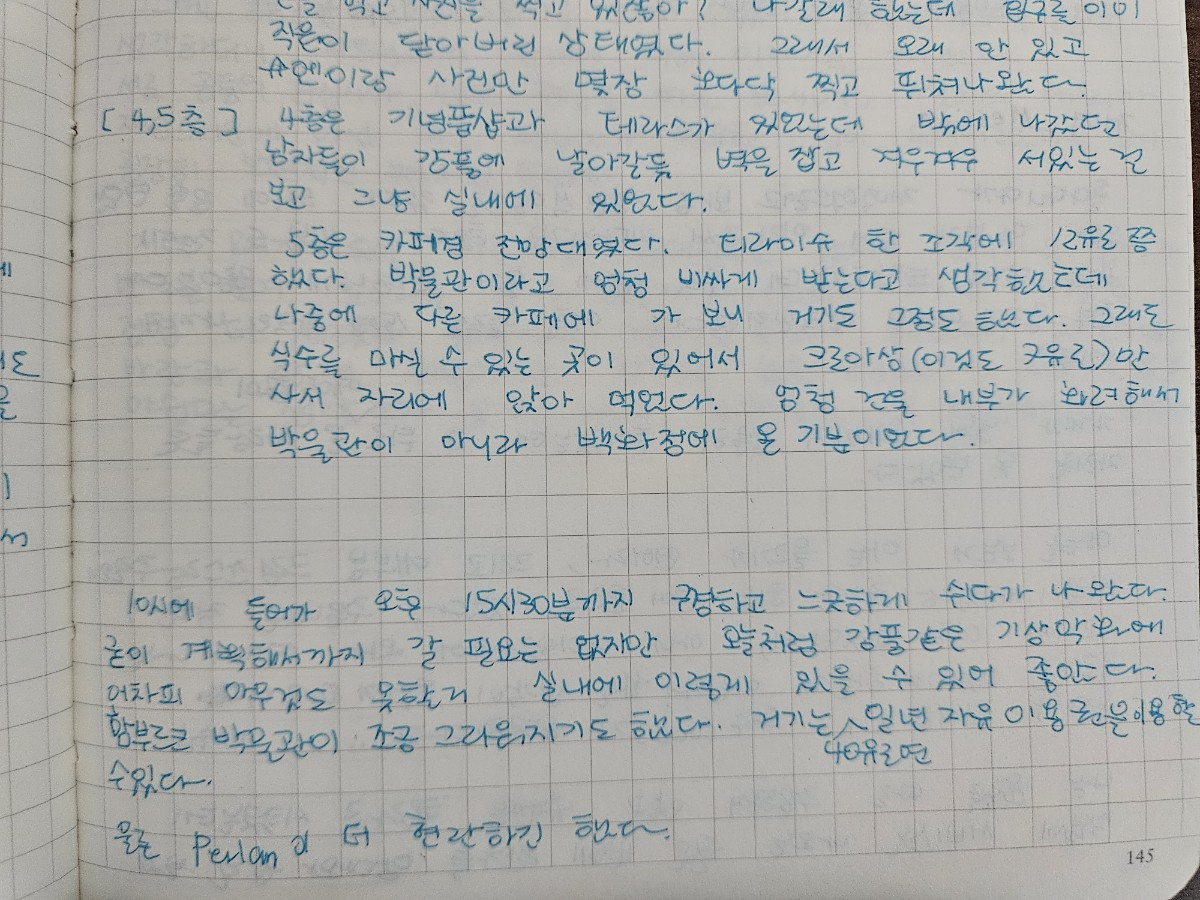 먹고 사진을 찍고 있잖아? 나갈래 했는데 입구를 이미
직원이 닫아버린 상태였다. 그래서 오래 안 있고
사진만 몇장 후다닥 찍고 뛰쳐나왔다.
[4,5층] 4층은 기념품샵과 테라스가 있었는데 밖에 나갔다
남자들이 강풍에 날아갈듯 벽을 잡고 겨우겨우 서있는 걸
보고 그냥 실내에 있었다.
5층은 카페겸 전망대였다. 티라미슈 한 조각에 12유로 쯤
했다. 박물관이라고 엄청 비싸게 받는다고 생각했는데
나중에 다른 카페에 가 보니 거기도 그정도 했다. 그래도
식수를 마실 수 있는 곳이 있어서 크로아상(이것도 7유로)만
사서 자리에 앉아 먹었다. 엄청 건물 내부가 화려해서
박물관이 아니라 백화점에 온 기분이었다.
10시에 들어가 오후 15시30분까지 구경하고 느긋하게 쉬다가 나왔다.
굳이 계획해서까지 갈 필요는 없지만 오늘처럼 강풍같은 기상악화에
어차피 아무것도 못할거 실내에 이렇게 있을 수 있어 좋았다.
함부르크 박물관이 조금 그리워지기도 했다. 거기는 40유로면 일년 자유 이용권을 이용할
수있다.
물론 Perlan이 더 현란하긴 했다.
145